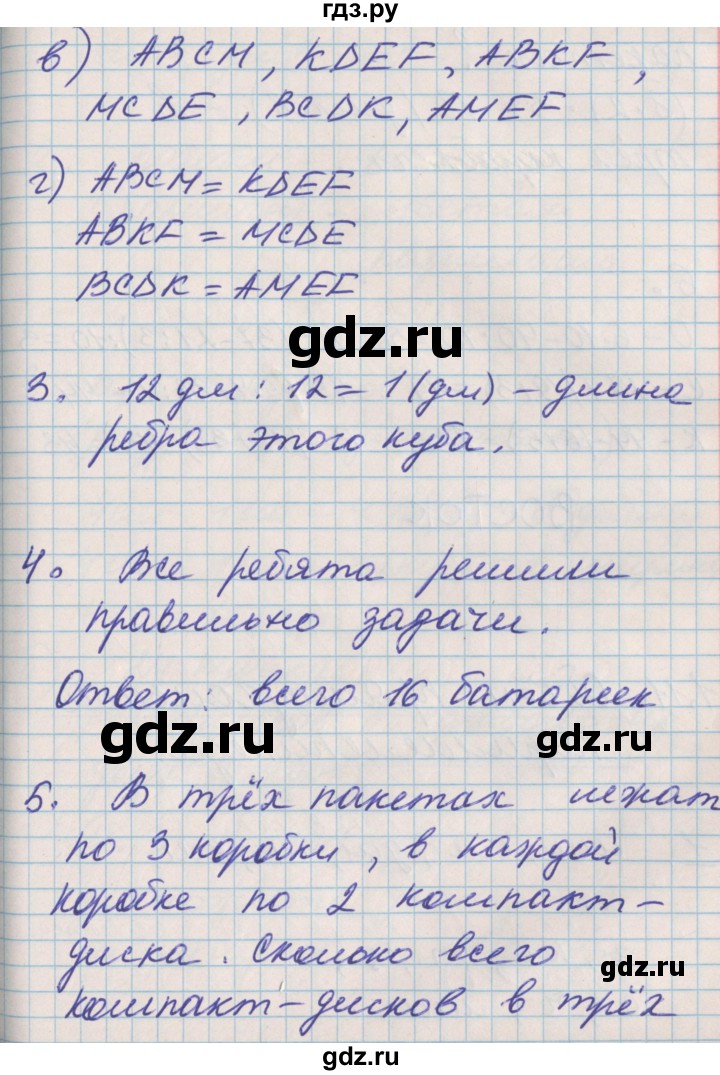 гдз.ру
в) ABCM, KDEF, ABKF,
MCDE, BCDK, AMEF
г) ABCM = KDEF
ABKF = MCDE
BCDK = AMEF
gdz.ru
3. 12 дм : 12 = 1 (дм) – длина
ребра этого куба.
4. Все ребята решили
правильно задачи.
Ответ: всего 16 батареек
gdz.ru
gdz.ru
5. В трёх пакетах лежат
по 3 коробки, в каждой
коробке по 2 компакт-
диска. Сколько всего
gdz.ru
компакт-дисков в трёх
gdz.ru